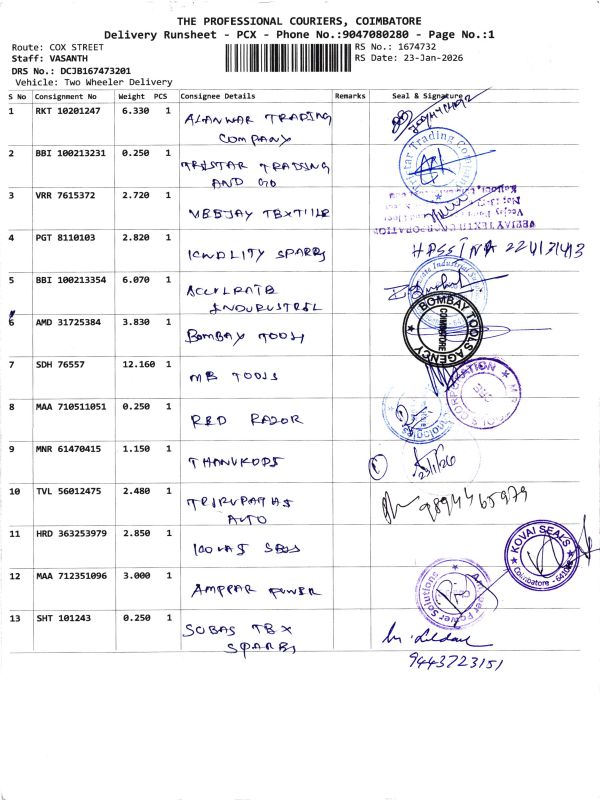 THE PROFESSIONAL COURIERS, COIMBATORE
Delivery Runsheet - PCX - Phone No.:9047080280 - Page No.:1
Route: COX STREET
RS No.: 1674732
Staff: VASANTH
RS Date: 23-Jan-2026
DRS No.: DCJB167473201
Vehicle: Two Wheeler Delivery
S No Consignment No Weight PCS Consignee Details Remarks Seal & Signature
1 RKT 10201247 6.330 1 ALANWAR TRADING
COMPANY
2 BBI 100213231 0.250 1 TRISTAR TRADING
AND CO
Tristar Trading Com
3 VRR 7615372 2.720 1 VEEJAY TEXTILE
VEEJAY TEXTILE CORPORATION
4 PGT 8110103 2.820 1 SPARES
5 BBI 100213354 6.070 1 ACCLRATE
INDURUSTREL
6 AMD 31725384 3.830 1 BOMBAY TOOLS
BOMBAY TOOLS AGENCY
COIMBATORE
7 SDH 76557 12.160 1 MB TOOLS
8 MAA 710511051 0.250 1 RED RAZOR
9 MNR 61470415 1.150 1 THANUKOPS
23/1/26
10 TVL 56012475 2.480 1 TRIRUPATHS
AUTO
9894465979
11 HRD 363253979 2.850 1
KOVAI SEALS
Coimbatore - 6410
12 MAA 712351096 3.000 1 AMPPAR POWER
Power Solutions
13 SHT 101243 0.250 1 SUBAS TEX
SPARES
9443723151